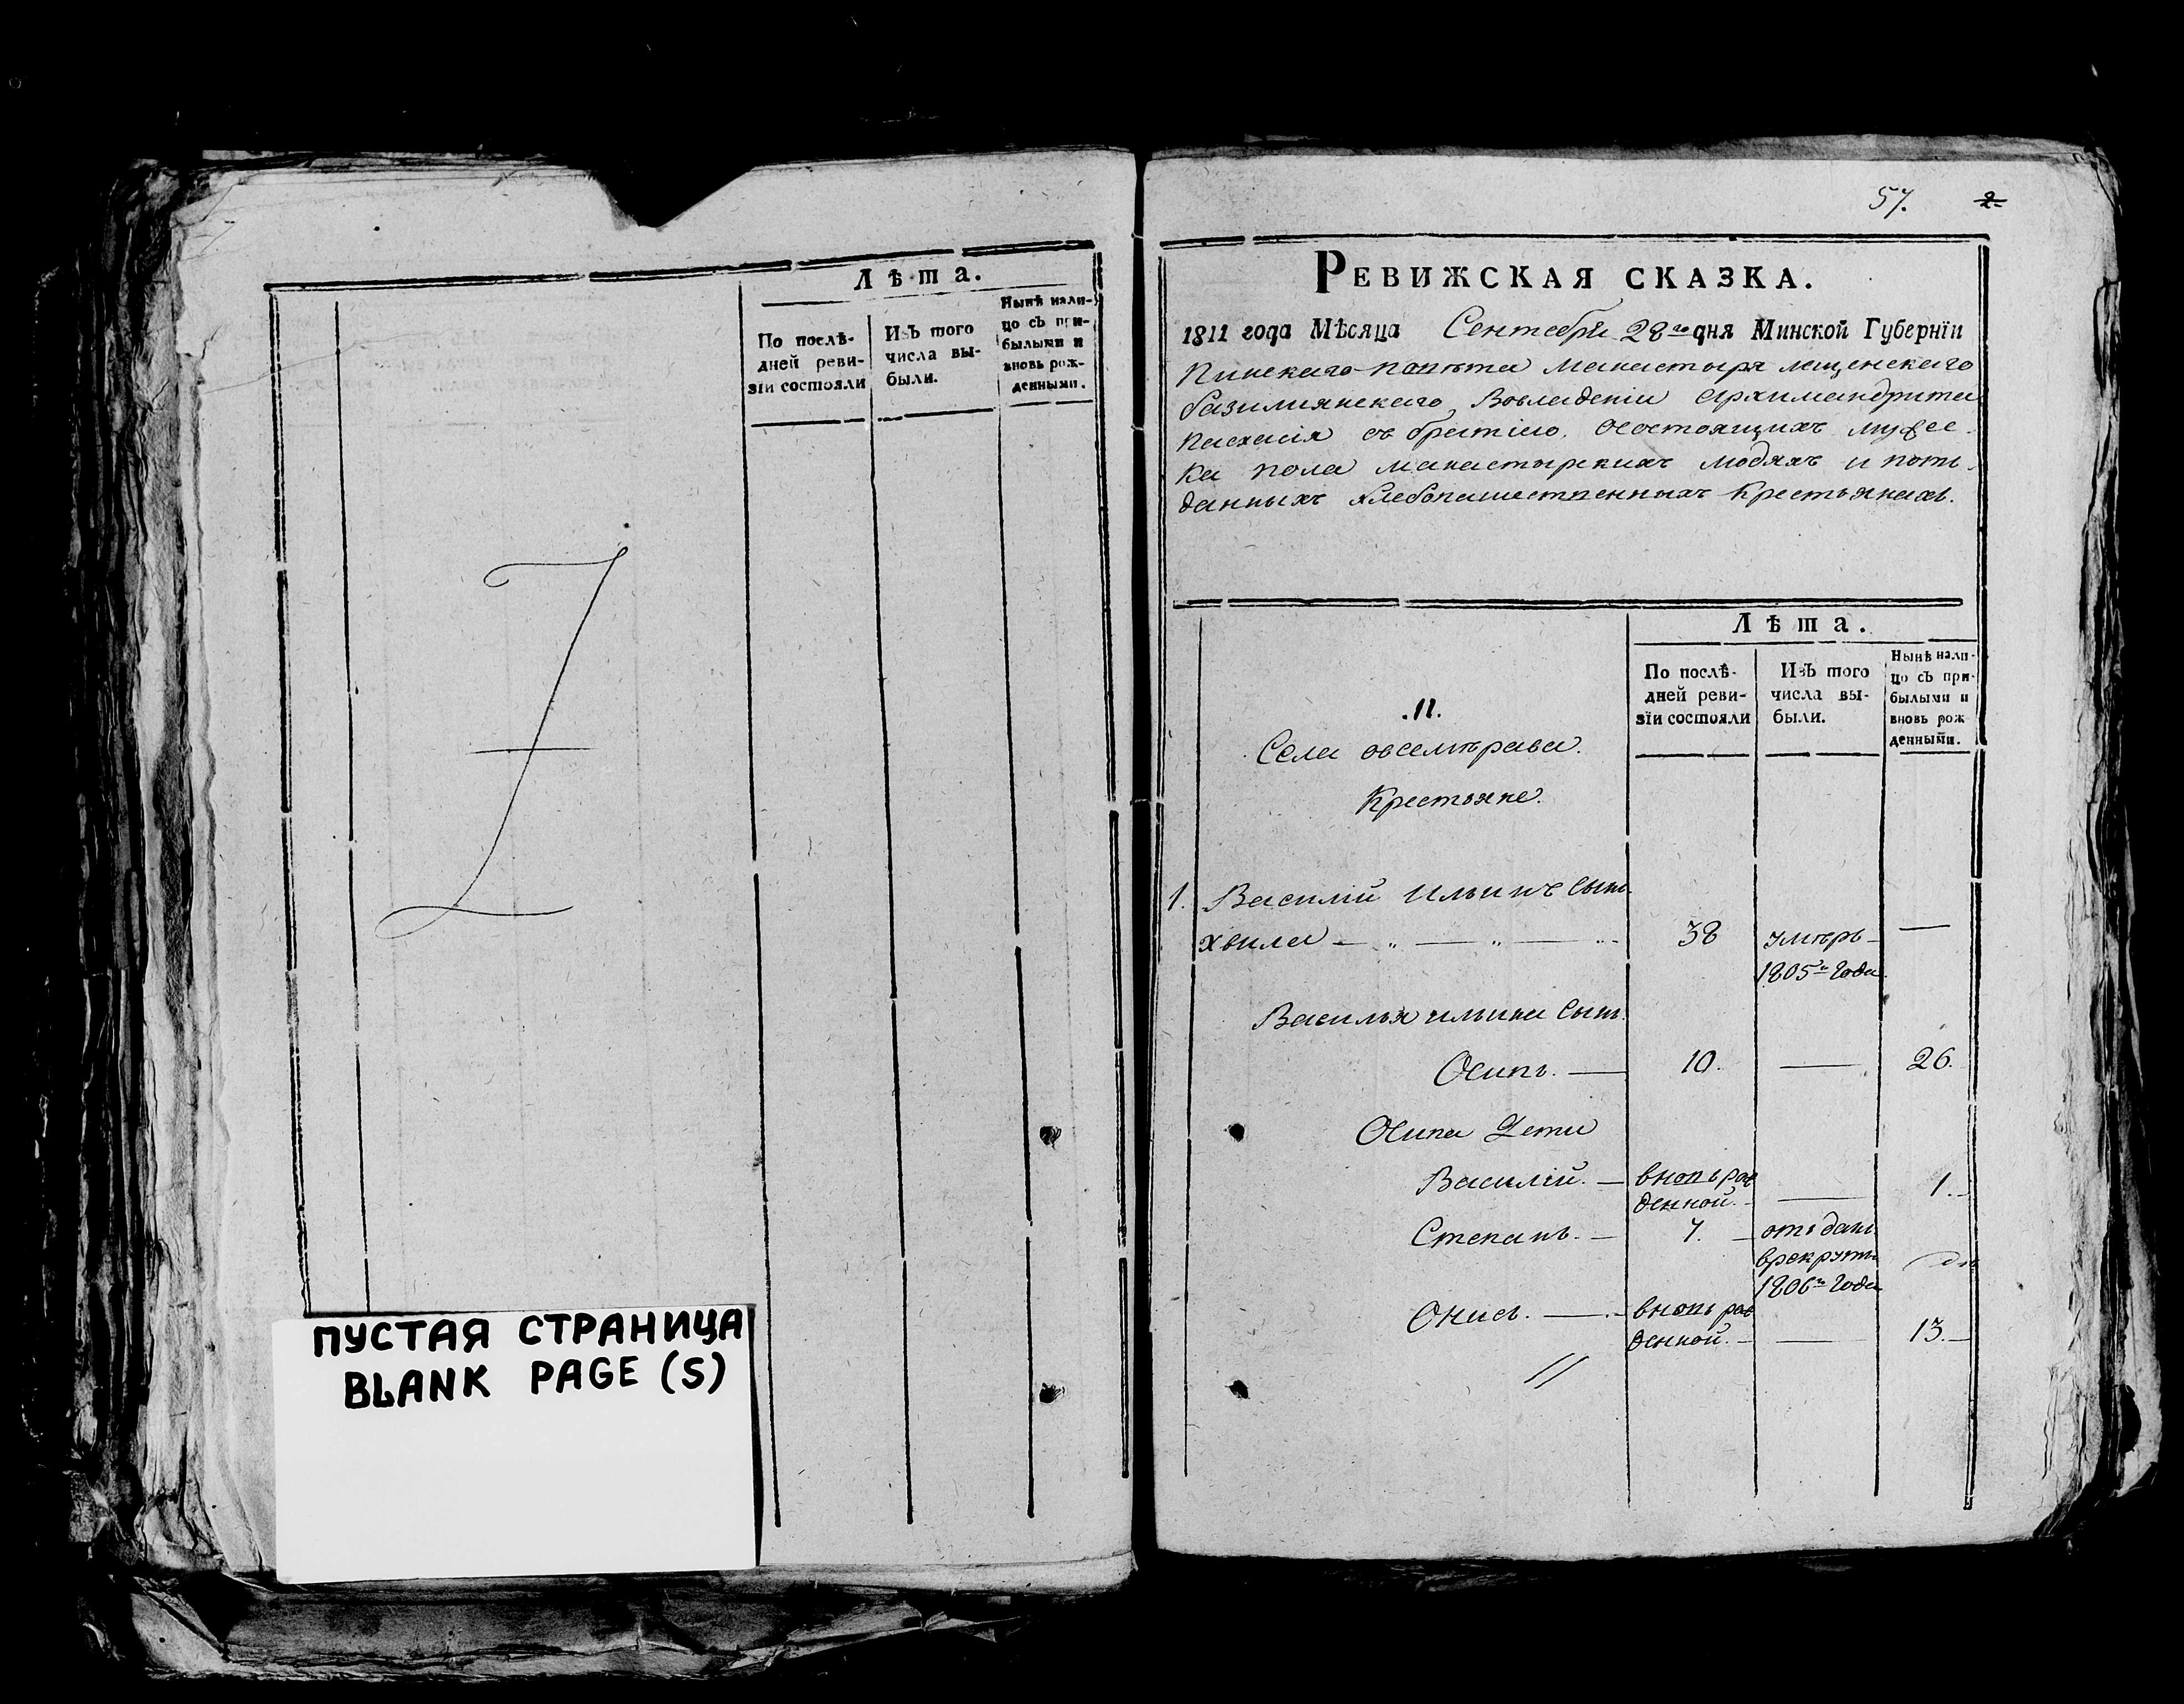 Лѣта.
По послѣ-
дней реви-
зїи состояли
Изъ того
числа вы-
были.
Нынѣ нали-
цо съ при-
былыми и
вновь рож-
денными.
ПУСТАЯ СТРАНИЦА
BLANK PAGE (S)
57. 2
РЕВИЖСКАЯ СКАЗКА.
1811 года Мѣсяца Сентебря 28го дня Минской Губернїи
Пинскаго повѣта Манастыря лещенскаго
базилиянскаго Вовладенiи Архимандрита
Пахасiя съ братiею. Осостоящихъ мужес-
ка пола манастырскихъ людяхъ и потъ-
данныхъ хлебопашественныхъ крестьянахъ.
Лѣта.
По послѣ-
дней реви-
зїи состояли
Изъ того
числа вы-
были.
Нынѣ нали-
цо съ при-
былыми и
вновь рож
денными.
.11.
Села
Крестьяне.
1. Василiй Ильинъ сынъ
хвила 38 умѣръ —
1805го Года
Василья ильина сынъ
Осипъ. — 10. — 26.
Осипа Дети
Василiй. — вновь рож
денной. — 1.
Степанъ. — 7. — отъданъ
врекруты
1806го Года
Онисъ. — вновь рож
денной. — 13.